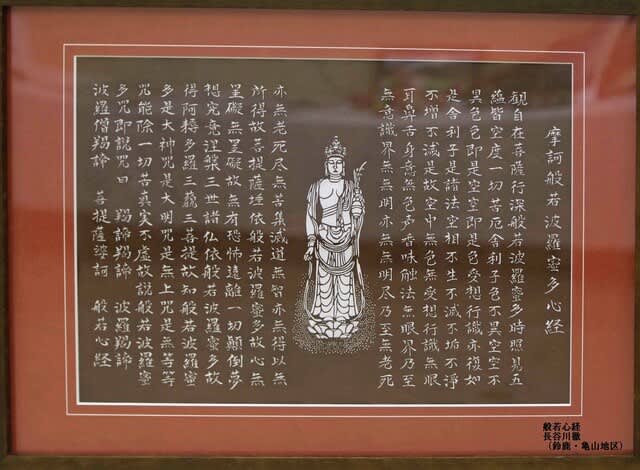 摩訶般若波羅蜜多心経
観自在菩薩行深般若波羅蜜多時照見五
蘊皆空度一切苦厄舎利子色不異空空不
異色色即是空空即是色受想行識亦復如
是舎利子是諸法空相不生不滅不垢不淨
不増不減是故空中無色無受想行識無眼
耳鼻舌身意無色声香味触法無眼界乃至
無意識界無無明亦無無明尽乃至無老死
亦無老死尽無苦集滅道無智亦無得以無
所得故菩提薩埵依般若波羅蜜多故心無
罣礙無罣礙故無有恐怖遠離一切顛倒夢
想究竟涅槃三世諸仏依般若波羅蜜多故
得阿耨多羅三藐三菩提故知般若波羅蜜
多是大神咒是大明咒是無上咒是無等等
咒能除一切苦真実不虚故説般若波羅蜜
多咒即説咒曰 羯諦羯諦 波羅羯諦
波羅僧羯諦 菩提薩婆訶 般若心経
般若心経
長谷川徹
(鈴鹿・亀山地区)